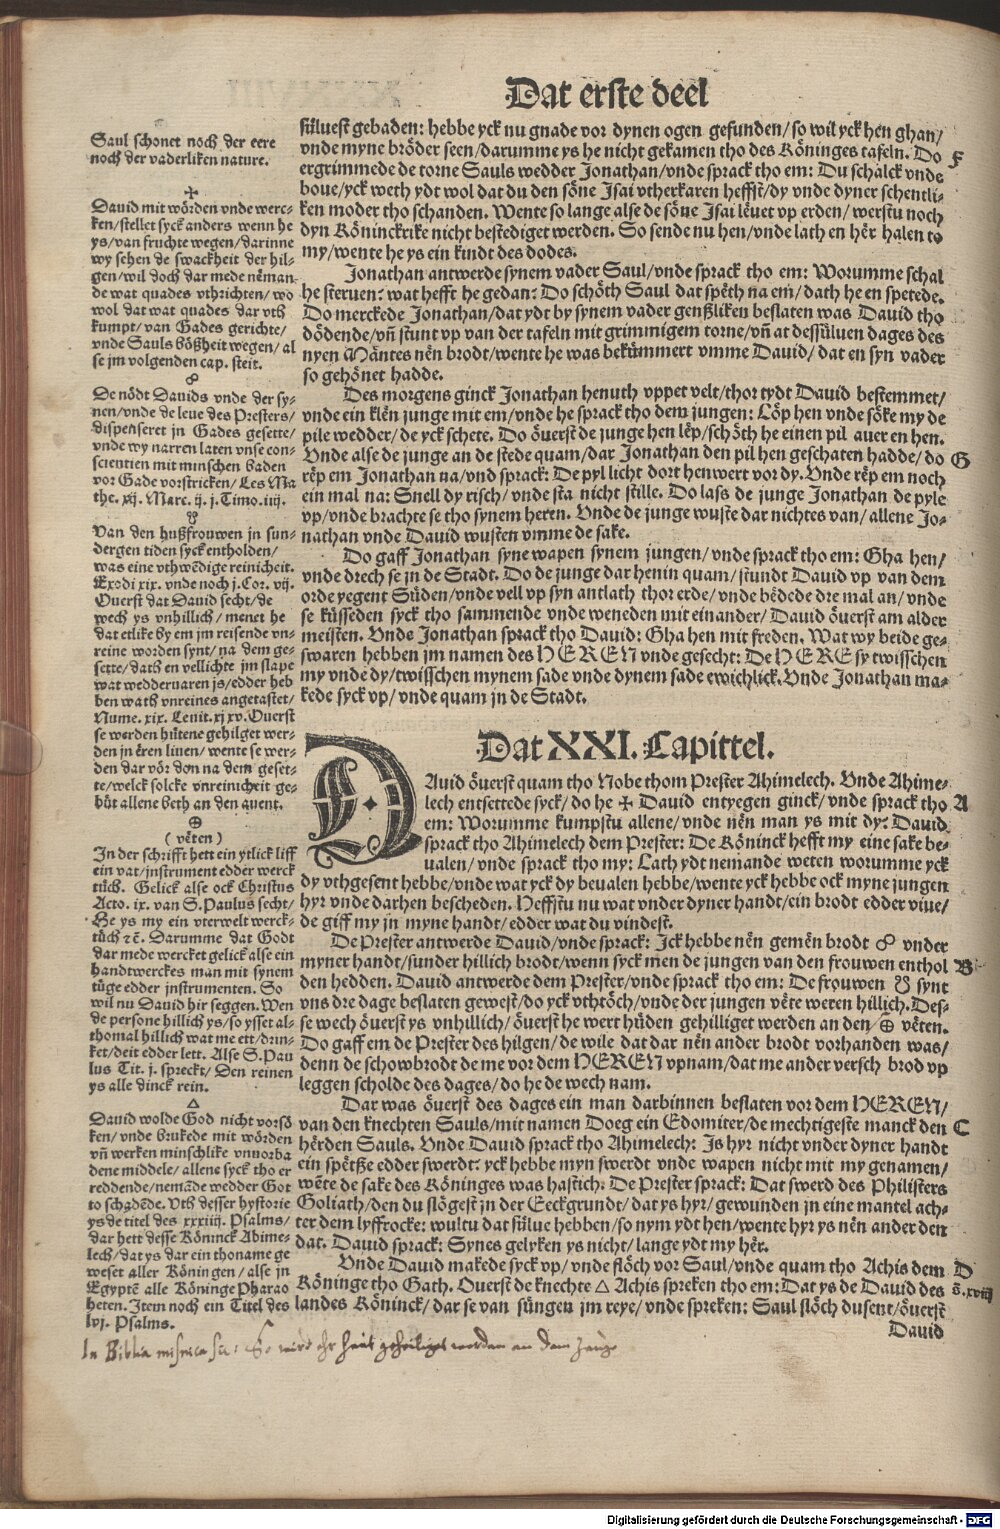 Dat erste deel
Saul schonet noch der eere
noch der vaderliken nature.
✠
David mit wörden vnde werc-
ken/stellet syck anders wenn he
ys/van fruchte wegen/darinne
wy sehen de swackheit der hil-
gen/wil doch dar mede nēman-
de wat quades vthrichten/wo
wol dat wat quades dar vth
kumpt/van Gades gerichte/
vnde Sauls bößheit wegen/al
se jm volgenden cap. steit.
De nödt Davids vnde der sy-
nen/vnde de leue des Presters/
dispenseret jn Gades gesette/
vnde wy narren laten vnse con-
scientien mit minschen baden
vor Gade vorstricken/Les Ma
the. xij. Marc. ij. j. Timo. iiij.
Van den hußfrouwen jn sun-
dergen tiden syck entholden/
was eine vthwēdige reinicheit.
Exodi xix. vnde noch j. Cor. vij.
Ouerst dat David secht/de
wech ys vnhillich/menet he
dat etlike by em jm reisende vn-
reine worden synt/na dem ge-
sette/dath en vellichte jm slape
wat wedderuaren js/edder heb
ben wath vnreines angetastet/
Nume. xix. Leuit. xj xv. Ouerst
se werden hütene gehilget wer-
den jn ēren liuen/wente se wer-
den dar vör don na dem geset-
te/welck solcke vnreinicheit ge-
büt allene beth an den auent.
⊕
(vēten)
In der schrifft hett ein ytlick liff
ein vat/jnstrument edder werck
tüch. Gelick alse ock Christus
Acto. ix. van S. Paulus secht/
He ys my ein vterwelt werck-
tüch ⁊c̄. Darumme dat Godt
dar mede wercket gelick alse ein
handtwerckes man mit synem
tüge edder jnstrumenten. So
wil nu David hir seggen. Wen
de persone hillich ys/so ysset al-
thomal hillich wat me ett/drin-
ket/deit edder lett. Alse S. Pau
lus Tit. j. spreckt/Den reinen
ys alle dinck rein.
△
David wolde God nicht vorsö
ken/vnde brukede mit wörden
vn̄ werken minschlike vnuorba
dene middele/allene syck tho er
reddende/nemāde wedder Got
to schadēde. Vth desser hystorie
ys de titel des xxxiiij. Psalms/
dar hett desse Köninck Ahime-
lech/dat ys dar ein thoname ge
weset aller Köningen/alse jn
Egyptē alle Köninge Pharao
heten. Item noch ein Titel des
lvj. Psalms.
süluest gebaden: hebbe yck nu gnade vor dynen ogen gefunden/so wil yck hen ghan/
vnde myne bröder seen/darumme ys he nicht gekamen tho des Köninges tafeln. Do F
ergrimmede de torne Sauls wedder Jonathan/vnde sprack tho em: Du schalck vnde
boue/yck weth ydt wol dat du den söne Isai vtherkaren heffst/dy vnde dyner schentli-
ken moder tho schanden. Wente so lange alse de söne Isai lēuet vp erden/werstu noch
dyn Köninckrike nicht bestediget werden. So sende nu hen/vnde lath en hēr halen to
my/wente he ys ein kindt des dodes.
Jonathan antwerde synem vader Saul/vnde sprack tho em: Worumme schal
he steruen? wat hefft he gedan? Do schöth Saul dat spēth na em/dath he en spetede.
Do merckede Jonathan/dat ydt by synem vader genßliken beslaten was David tho
dödende/vn̄ stunt vp van der tafeln mit grimmigem torne/vn̄ at dessüluen dages des
nyen Mäntes nēn brodt/wente he was bekümmert vmme David/dat en syn vader
so gehönet hadde.
Des morgens ginck Jonathan henuth vppet velt/thor tydt David bestemmet/
vnde ein klēn junge mit em/vnde he sprack tho dem jungen: Löp hen vnde söke my de
pile wedder/de yck schete. Do öuerst de junge hen lēp/schöth he einen pil auer en hen.
Vnde alse de junge an de stede quam/dar Jonathan den pil hen geschaten hadde/do G
rēp em Jonathan na/vnd sprack: De pyl licht dort henwert vor dy. Vnde rēp em noch
ein mal na: Snell dy risch/vnde sta nicht stille. Do lass de junge Jonathan de pyle
vp/vnde brachte se tho synem heren. Vnde de junge wuste dar nichtes van/allene Jo-
nathan vnde David wusten vmme de sake.
Do gaff Jonathan syne wapen synem jungen/vnde sprack tho em: Gha hen/
vnde drech se jn de Stadt. Do de junge dar henin quam/stundt David vp van dem
orde yegent Süden/vnde vell vp syn antlath thor erde/vnde bēdede dre mal an/vnde
se küsseden syck tho sammende vnde weneden mit einander/David öuerst am alder
meisten. Vnde Jonathan sprack tho David: Gha hen mit freden. Wat wy beide ge-
swaren hebben jm namen des HEREN vnde gesecht: De HERE sy twisschen
my vnde dy/twisschen mynem sade vnde dynem sade ewichlick. Vnde Jonathan ma-
kede syck vp/vnde quam jn de Stadt.
Dat XXI. Capittel.
DAuid öuerst quam tho Nobe thom Prester Ahimelech. Vnde Ahime-
lech entsettede syck/do he ✠ David entyegen ginck/vnde sprack tho A
em: Worumme kumpstu allene/vnde nēn man ys mit dy? David
sprack tho Ahimelech dem Prester: De Köninck hefft my eine sake be-
ualen/vnde sprack tho my: Lath ydt nemande weten worumme yck
dy vthgesent hebbe/vnde wat yck dy beualen hebbe/wente yck hebbe ock myne jungen
hyr vnde darhen bescheden. Heffstu nu wat vnder dyner handt/ein brodt edder viue/
de giff my jn myne handt/edder wat du vindest.
De Prester antwerde David/vnde sprack: Ick hebbe nēn gemēn brodt vnder
myner handt/sunder hillich brodt/wenn syck men de jungen van den frouwen enthol B
den hedden. David antwerde dem Prester/vnde sprack tho em: De frouwen synt
vns dre dage beslaten gewest/do yck vthtöch/vnde der jungen vēte weren hillich. Des-
se wech öuerst ys vnhillich/öuerst he wert hüden gehilliget werden an den/⊕ vēten.
Do gaff em de Prester des hilgen/de wile dat dar nēn ander brodt vorhanden was/
denn de schowbrodt de me vor dem HEREN vpnam/dat me ander versch brod vp
leggen scholde des dages/do he de wech nam.
Dar was öuerst des dages ein man darbinnen beslaten vor dem HEREN/
van den knechten Sauls/mit namen Doeg ein Edomiter/de mechtigeste manck den C
hērden Sauls. Vnde David sprack tho Ahimelech: Is hyr nicht vnder dyner handt
ein spētße edder swerdt? yck hebbe myn swerdt vnde wapen nicht mit my genamen/
wēte de sake des Köninges was hastich: De Prester sprack: Dat swerd des Philisters
Goliath/den du slögest jn der Eeckgrundt/dat ys hyr/gewunden jn eine mantel ach-
ter dem lyffrocke: wultu dat sülue hebben/so nym ydt hen/wente hyr ys nēn ander den
dat. David sprack: Synes gelyken ys nicht/lange ydt my hēr.
Vnde David makede syck vp/vnde flöch vor Saul/vnde quam tho Achis dem D
Köninge tho Gath. Ouerst de knechte △ Achis spreken tho em: Dat ys de David des s̄. xviij
landes Köninck/dar se van süngen jm reye/vnde spreken: Saul slöch dusent/öuerst
David
In Biblia so wirt ehr heut geheiliget werden an dem zeuge
Digitalisierung gefördert durch die Deutsche Forschungsgemeinschaft - DFG